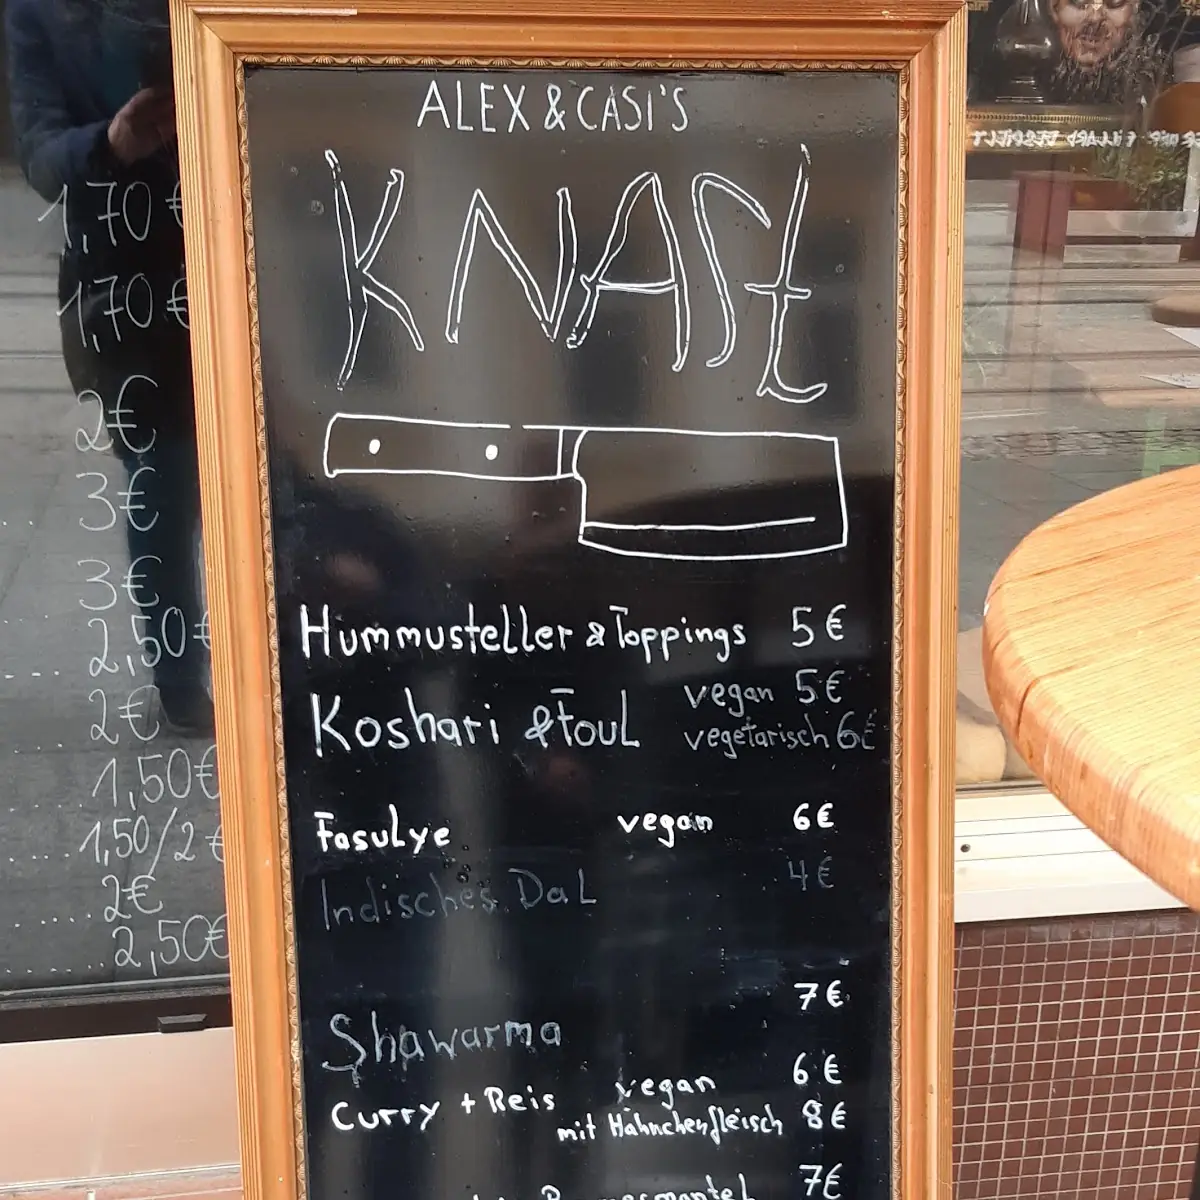 ALEX & CASI'S
KNAST
Hummusteller & Toppings 5€
Koshari & Foul vegan 5€
vegetarisch 6€
Fasulye vegan 6€
Indisches Dal 4€
7€
Shawarma
Curry + Reis vegan 6€
mit Hähnchenfleisch 8€
7€
1,70 €
1,70 €
2€
3€
3€
2,50€
2€
1,50€
1,50/2 €
2€
2,50€